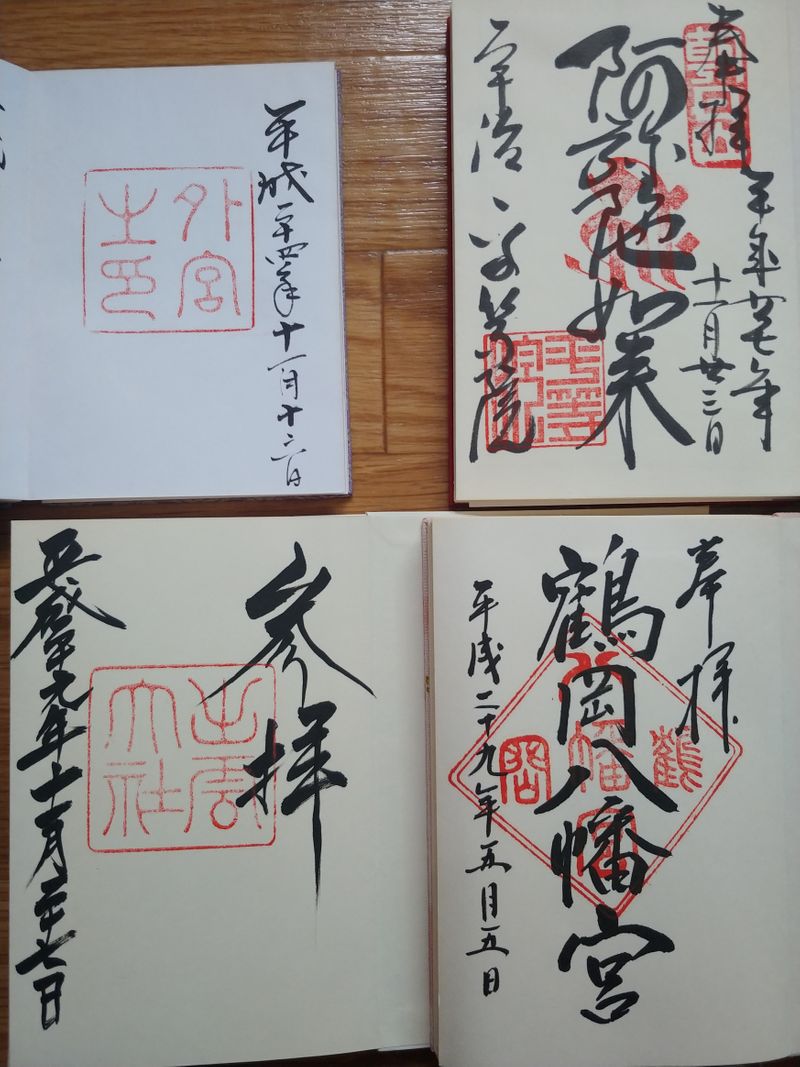 平成二十四年十一月十六日
外宮
之印
奉拝
平成廿七年
十一月廿三日
阿弥陀如来
宇治 平等院
平等
院印
参拝
出雲
大社
平成二十九年十一月二十七日
奉拝
鶴岡八幡宮
鶴
八幡宮
岡
平成二十九年五月五日